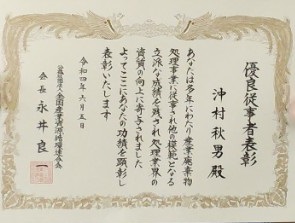 優良従事者表彰
沖村秋男殿
あなたは多年にわたり産業廃棄物
処理事業に従事され他の模範となる
立派な成績を残され処理業界の
資質の向上に寄与されました
よってここにあなたの功績を顕彰し
表彰いたします
令和四年六月五日
公益社団法人全国産業資源循環連合会
会長 永井良一